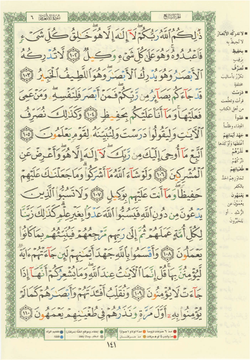 ذَٰلِكُمُ ٱللَّهُ رَبُّكُمْ لَآ إِلَٰهَ إِلَّا هُوَ خَٰلِقُ كُلِّ شَىْءٍ
فَٱعْبُدُوهُ وَهُوَ عَلَىٰ كُلِّ شَىْءٍ وَكِيلٌ ١٠٢ لَّا تُدْرِكُهُ
ٱلْأَبْصَٰرُ وَهُوَ يُدْرِكُ ٱلْأَبْصَٰرَ وَهُوَ ٱللَّطِيفُ ٱلْخَبِيرُ ١٠٣
قَدْ جَآءَكُم بَصَآئِرُ مِن رَّبِّكُمْ فَمَنْ أَبْصَرَ فَلِنَفْسِهِۦ وَمَنْ عَمِىَ
فَعَلَيْهَا وَمَآ أَنَا۠ عَلَيْكُم بِحَفِيظٍ ١٠٤ وَكَذَٰلِكَ نُصَرِّفُ
ٱلْءَايَٰتِ وَلِيَقُولُوا۟ دَرَسْتَ وَلِنُبَيِّنَهُۥ لِقَوْمٍ يَعْلَمُونَ ١٠٥
ٱتَّبِعْ مَآ أُوحِىَ إِلَيْكَ مِن رَّبِّكَ لَآ إِلَٰهَ إِلَّا هُوَ وَأَعْرِضْ عَنِ
ٱلْمُشْرِكِينَ ١٠٦ وَلَوْ شَآءَ ٱللَّهُ مَآ أَشْرَكُوا۟ وَمَا جَعَلْنَٰكَ عَلَيْهِمْ
حَفِيظًا وَمَآ أَنتَ عَلَيْهِم بِوَكِيلٍ ١٠٧ وَلَا تَسُبُّوا۟ ٱلَّذِينَ
يَدْعُونَ مِن دُونِ ٱللَّهِ فَيَسُبُّوا۟ ٱللَّهَ عَدْوًۢا بِغَيْرِ عِلْمٍ كَذَٰلِكَ زَيَّنَّا
لِكُلِّ أُمَّةٍ عَمَلَهُمْ ثُمَّ إِلَىٰ رَبِّهِم مَّرْجِعُهُمْ فَيُنَبِّئُهُم بِمَا كَانُوا۟
يَعْمَلُونَ ١٠٨ وَأَقْسَمُوا۟ بِٱللَّهِ جَهْدَ أَيْمَٰنِهِمْ لَئِن جَآءَتْهُمْ ءَايَةٌ
لَّيُؤْمِنُنَّ بِهَا قُلْ إِنَّمَا ٱلْءَايَٰتُ عِندَ ٱللَّهِ وَمَا يُشْعِرُكُمْ أَنَّهَآ إِذَا
جَآءَتْ لَا يُؤْمِنُونَ ١٠٩ وَنُقَلِّبُ أَفْـِٔدَتَهُمْ وَأَبْصَٰرَهُمْ كَمَا لَمْ
يُؤْمِنُوا۟ بِهِۦٓ أَوَّلَ مَرَّةٍ وَنَذَرُهُمْ فِى طُغْيَٰنِهِمْ يَعْمَهُونَ ١١٠
١٤١